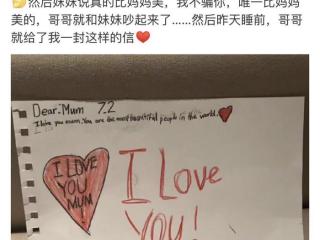 🤔然后妹妹说真的比妈妈美，我不骗你，唯一比妈妈
美的，哥哥就和妹妹吵起来了……然后昨天睡前，哥哥
就给了我一封这样的信❤️
Dear:Mum 7.2
I love you mum. You are the most beautiful people in the world.
I LOVE
YOU
MUM
I Love
YOU!